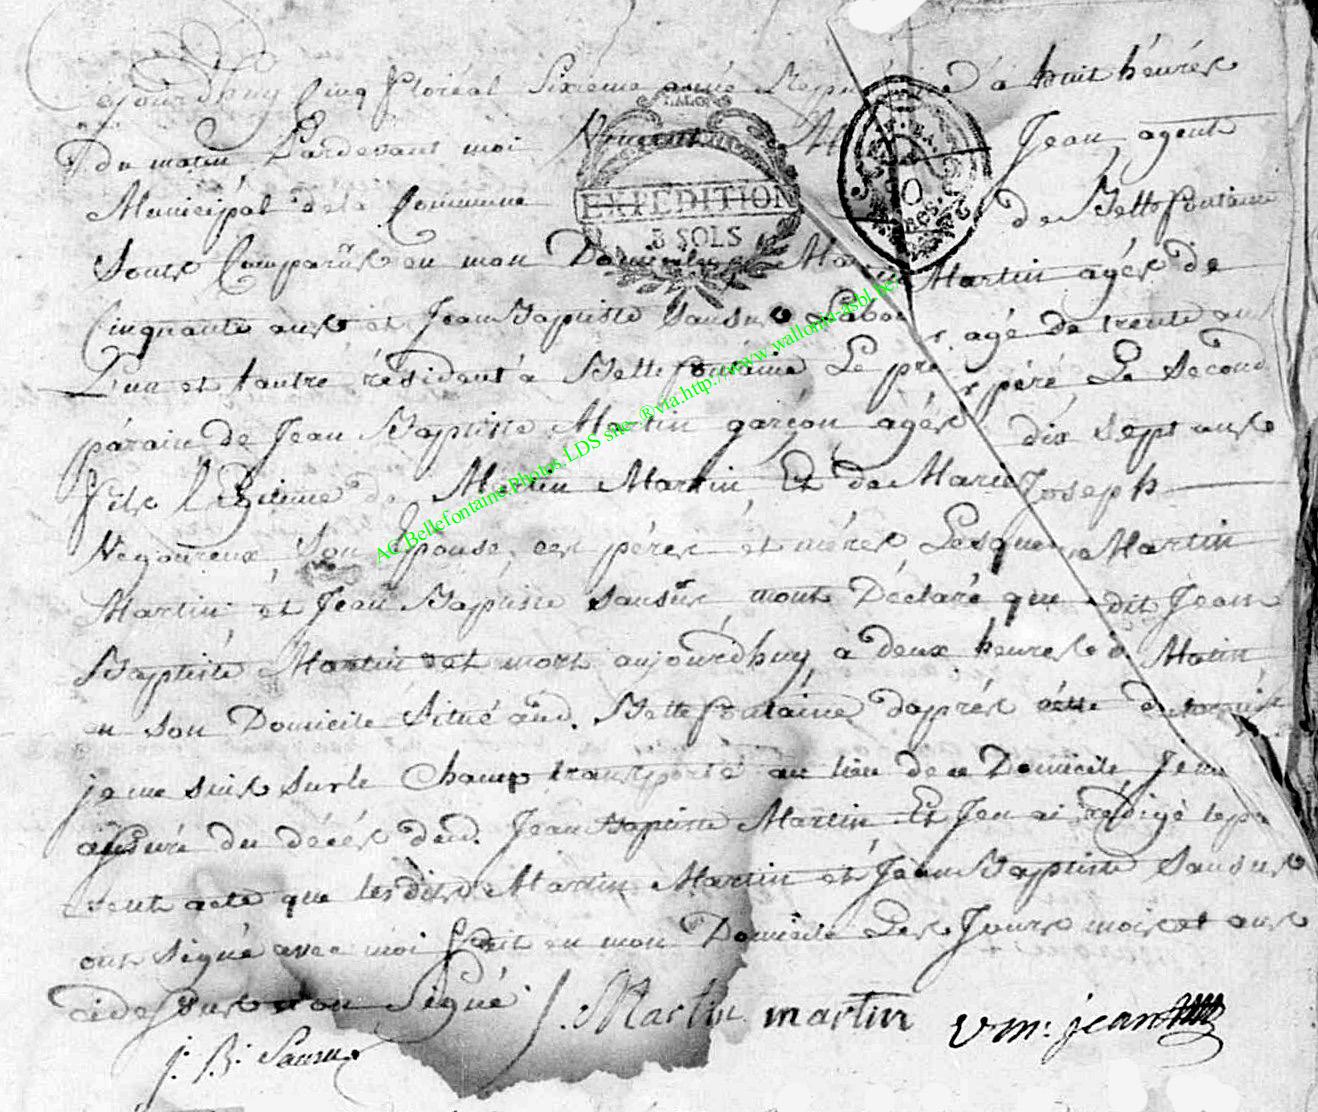 ejourdhuy Cinq floréal Sixième année Rep à huit heures
du matin Pardevant moi Vincent Jean agent
Municipal de la Commune de Bellefontaine
EXPEDITION
3 SOLS
Sont Comparus en mon Domicile Martin Martin agés de
Cinquante ans et Jean Baptiste Sansus Labou agé de trente an
L'un et lautre résident à Bellefontaine Le pre père Le Second
parain de Jean Baptiste Martin garçon agés dix Sept ans
fils légitime de Martin Martin Et de Marie Joseph
Son Epouse, ces pères et mères Lesquels Martin
Martin et Jean Baptiste sansus mont Déclaré que dit Jean
Baptiste Martin est mort aujourdhuy à deux heures Matin
en son Domicile Situé aud. Bellefontaine daprés cette
je me suis sur le Champ transporté au lieu de ce Domicile Je me
assuré du décés dud. Jean Baptiste Martin Et Jen ai rédigé le pre
sent acte que lesdits Martin Martin et Jean Baptiste Sansus
ont signé avec moi fait en mon Domicile Les Jours mois et ans
cidessus et on Signé
J. Martin martin vm: jean
j: B: Sansus
AC Bellefontaine Photos LDS site.®via.http://www.wallonia-asbl.be/